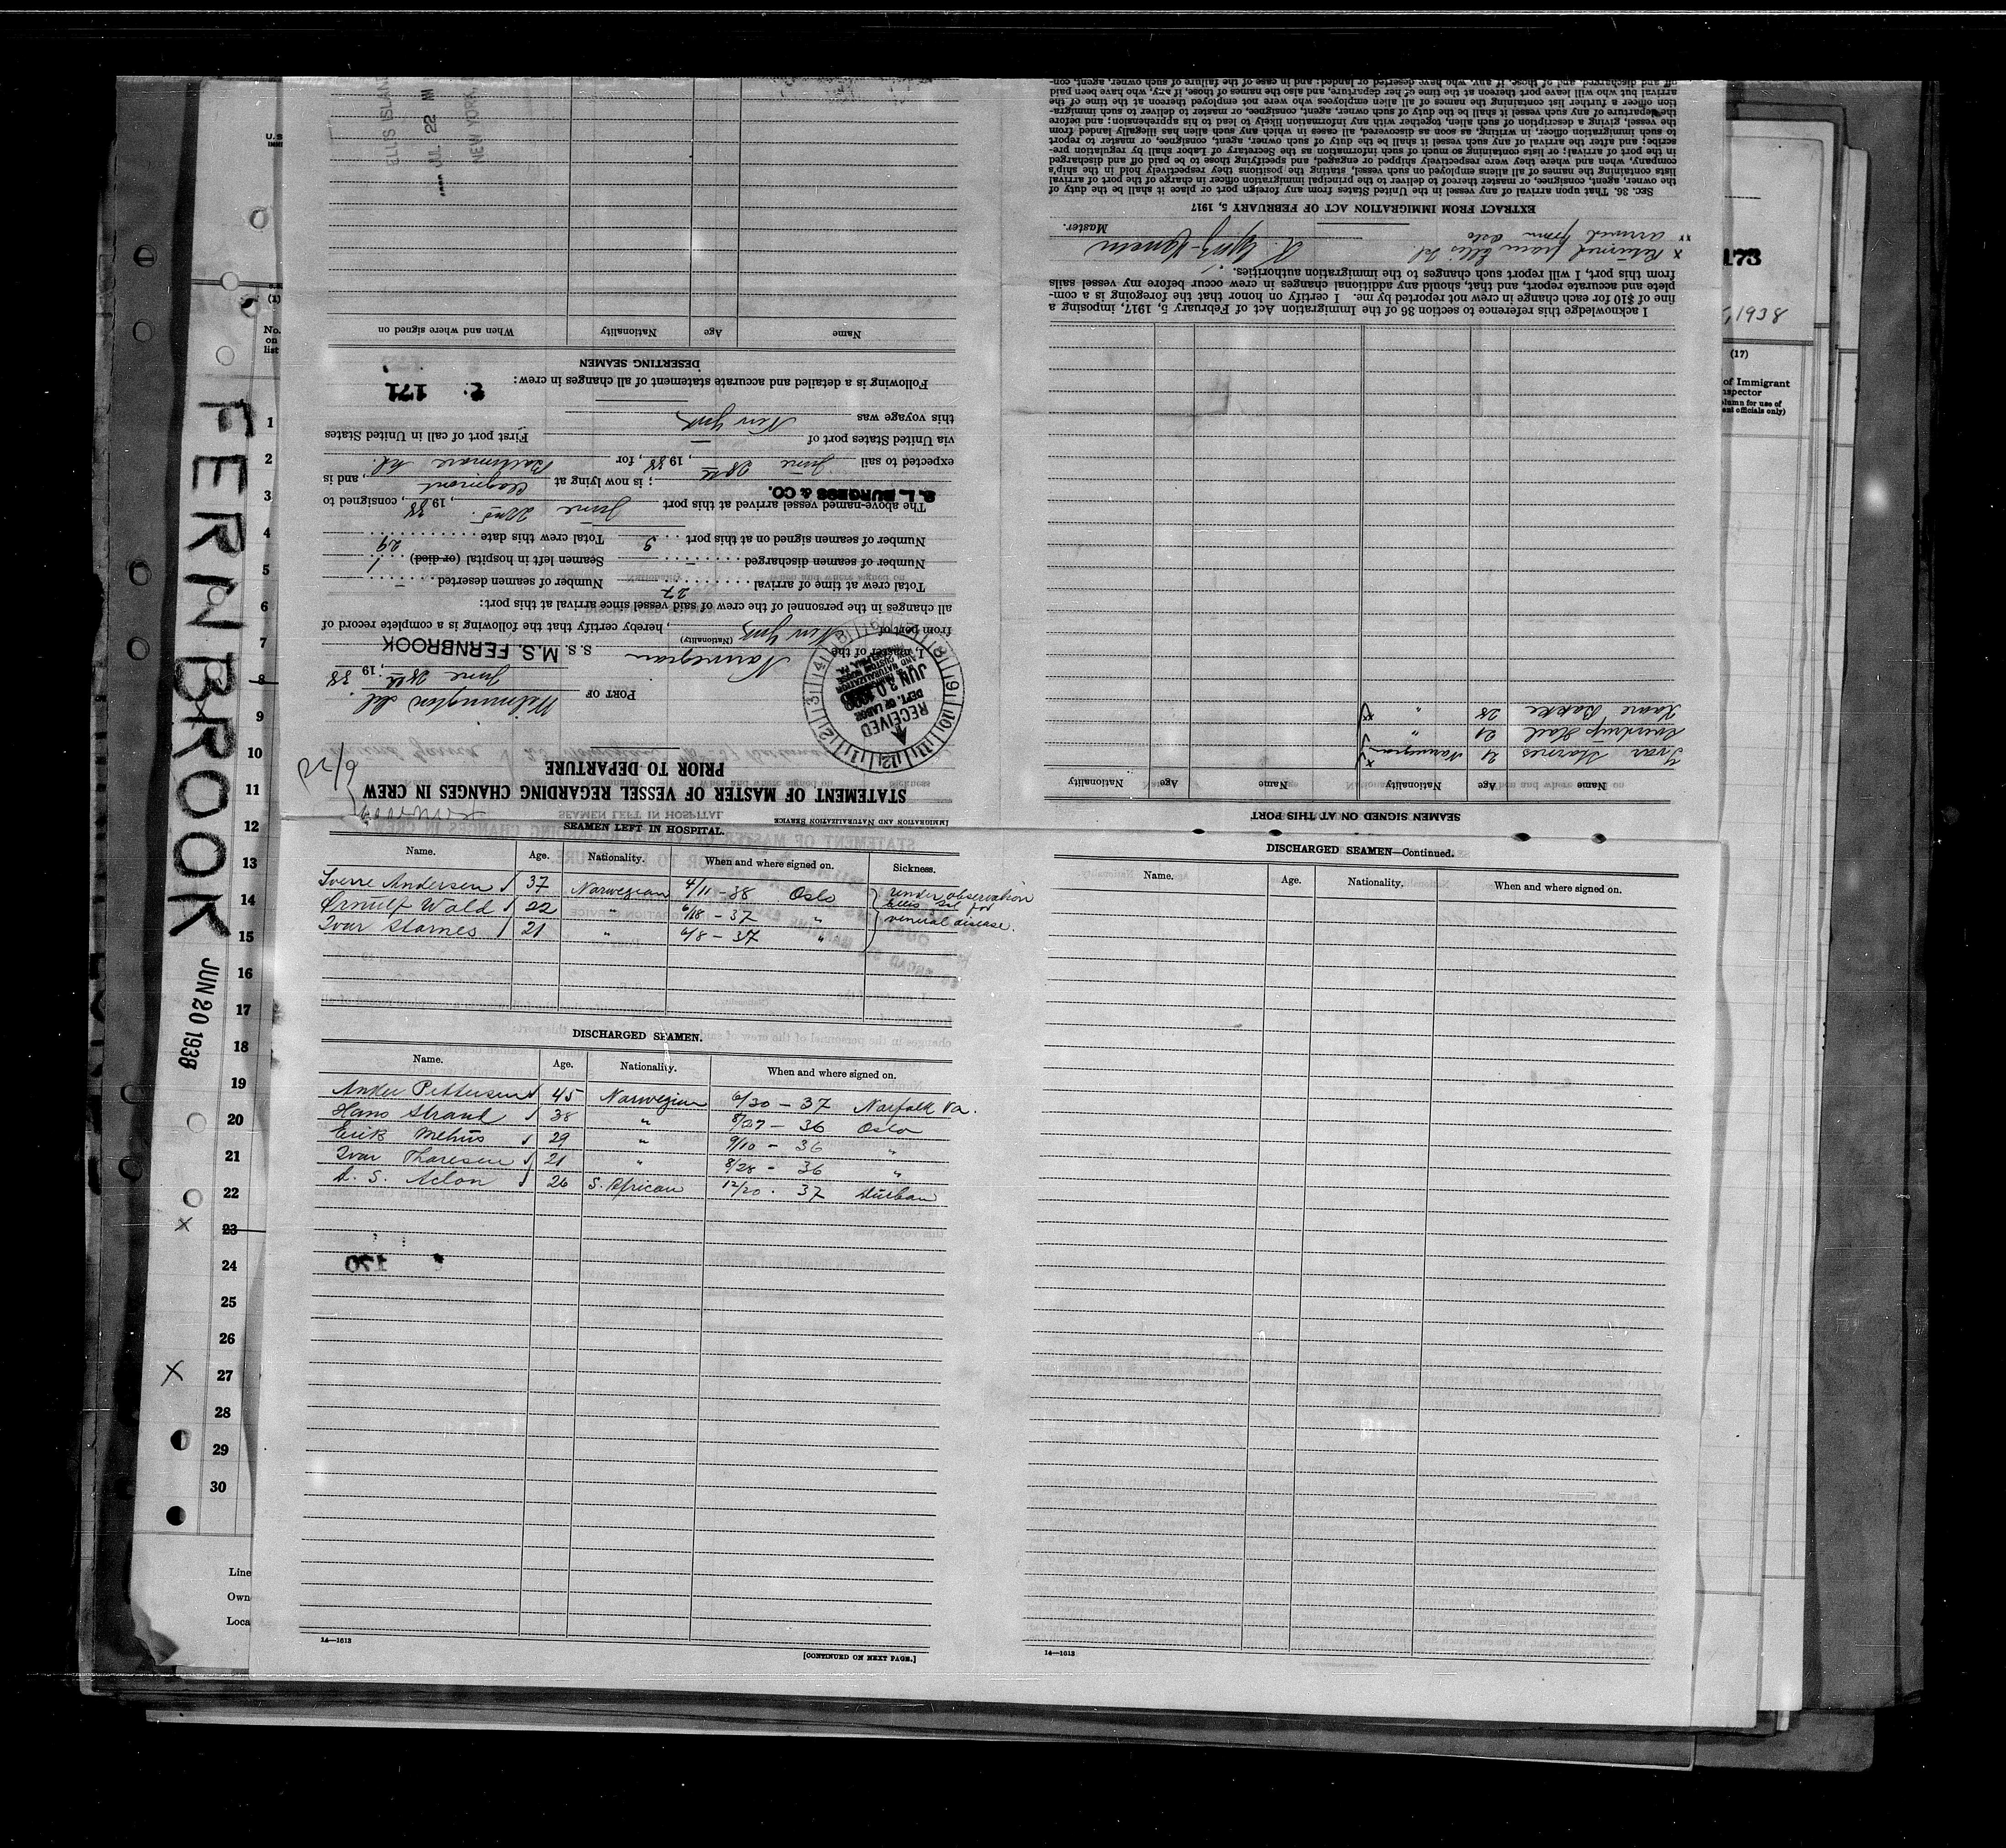 FERNBROOK
JUN 20 1938
No.
on
list
1
2
3
4
5
6
7
8
9
10
11
12
13
14
15
16
17
18
19
20
21
22
23
24
25
26
27
28
29
30
Line
Own
Loca
173
, 1938
(17)
of Immigrant
IMMIGRATION AND NATURALIZATION SERVICE
STATEMENT OF MASTER OF VESSEL REGARDING CHANGES IN CREW
PRIOR TO DEPARTURE
PORT OF Wilmington Del
June 28th, 1938
RECEIVED
DEPT. OF LABOR
I, master of the Norwegian S. S. M.S. FERNBROOK
(Nationality)
from port of New York, hereby certify that the following is a complete record of
all changes in the personnel of the crew of said vessel since arrival at this port:
Total crew at time of arrival 27 Number of seamen deserted –
Number of seamen discharged – Seamen left in hospital (or died) 1
Number of seamen signed on at this port 3 Total crew this date 29
The above-named vessel arrived at this port June 22nd, 1938, consigned to
S. L. BURGESS & CO.; is now lying at Claymont, and is
expected to sail June 28th, 1938, for Baltimore Md.
via United States port of — First port of call in United States
this voyage was New York
Following is a detailed and accurate statement of all changes in crew:
171
DESERTING SEAMEN
Name Age Nationality When and where signed on
ELLIS ISLAND
JUL 22
NEW YORK
SEAMEN SIGNED ON AT THIS PORT
Name Age Nationality Name Age Nationality
Ivar Starnes 21 Norwegian
21 "
Kaare Bakke 28 "
I acknowledge this reference to section 36 of the Immigration Act of February 5, 1917, imposing a
fine of $10 for each change in crew not reported by me. I certify on honor that the foregoing is a com-
plete and accurate report, and that, should any additional changes in crew occur before my vessel sails
from this port, I will report such changes to the immigration authorities.
x Returned from Ellis Isl.
xx arrived from Oslo
Master.
EXTRACT FROM IMMIGRATION ACT OF FEBRUARY 5, 1917
SEC. 36. That upon arrival of any vessel in the United States from any foreign port or place it shall be the duty of
the owner, agent, consignee, or master thereof to deliver to the principal immigration officer in charge of the port of arrival
lists containing the names of all aliens employed on such vessel, stating the positions they respectively hold in the ship's
company, when and where they were respectively shipped or engaged, and specifying those to be paid off and discharged
in the port of arrival; or lists containing so much of such information as the Secretary of Labor shall by regulation pre-
scribe; and after the arrival of any such vessel it shall be the duty of such owner, agent, consignee, or master to report
to such immigration officer, in writing, as soon as discovered, all cases in which any such alien has illegally landed from
the vessel, giving a description of such alien, together with any information likely to lead to his apprehension; and before
the departure of any such vessel it shall be the duty of such owner, agent, consignee, or master to deliver to such immigra-
tion officer a further list containing the names of all alien employees who were not employed thereon at the time of the
arrival but who will leave port thereon at the time of her departure, and also the names of those, if any, who have been paid
off and discharged, and of those, if any, who have deserted or landed; and in case of the failure of such owner, agent, con-
SEAMEN LEFT IN HOSPITAL.
Name. Age. Nationality. When and where signed on. Sickness.
Sverre Andersen 37 Norwegian 4/11 - 38 Oslo under observation
Ørnulf Wold 22 " 6/18 - 37 " Ellis Isl for
Ivar Starnes 21 " 6/8 - 37 " veneral disease.
DISCHARGED SEAMEN.
Name. Age. Nationality. When and where signed on.
Andor Pettersen 45 Norwegian 6/30 - 37 Norfolk Va.
Hans Strand 38 " 8/27 - 36 Oslo
Erik Mehus 29 " 9/10 - 36 "
Ivar Thoresen 21 " 8/28 - 36 "
A. S. Aclon 26 S. African 12/20 - 37 Durban
170
14—1613
[CONTINUED ON NEXT PAGE.]
DISCHARGED SEAMEN—Continued.
Name. Age. Nationality. When and where signed on.
14—1613